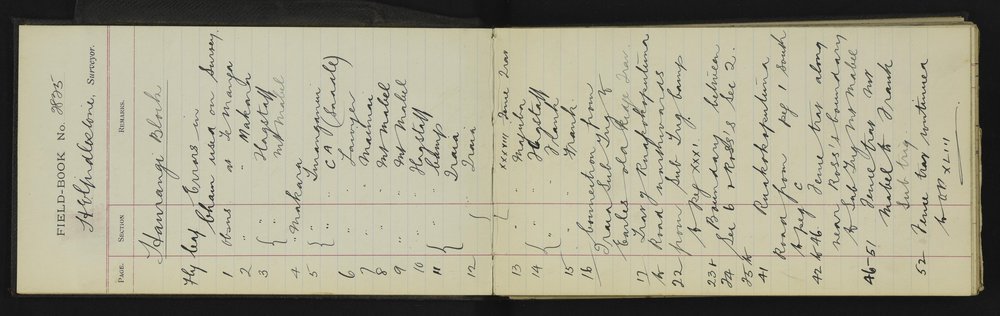 FIELD-BOOK No. 2835
Surveyor.
PAGE. SECTION REMARKS.
Hamrangi Block
Fly leaf Errors in
Chain used on Survey.
1 obsns at Te Manga
2 " " Makara
3 { " " Flagstaff
Mt Mabel
4 " Makara
5 { " " Imangarui
CA (Saddle)
6 " " Lawyer
7 " " Maimai
8 " " Mt Mabel
9 " " Mt Mabel
10 " " Flagstaff
11 { " " Camp
Iraia
12 { " " Iraia
XXXVIII June Tras
13 " " Majuba
14 { " " Flagstaff
Island
15 " " Frank
16 Connection from
Iraia Sub Trig to
Earles old Stadge Tras.
17 Tras of Ruapokaputuna
to Road northwards
22 from Sub Trig Camp
to peg XXXI.
23 & Boundary between
24 Sec 6 & Ross's Sec 2.
25 to
41 Ruakokoputuna
Road from peg 1 South
to peg C
42 to 46 Fence tras along
near Ross's boundary
to Sub Trig Mt Mabel
46-51 Fence tras Mt
Mabel to Frank
Sub trig
52 Fence tras continued
to OP XLIII